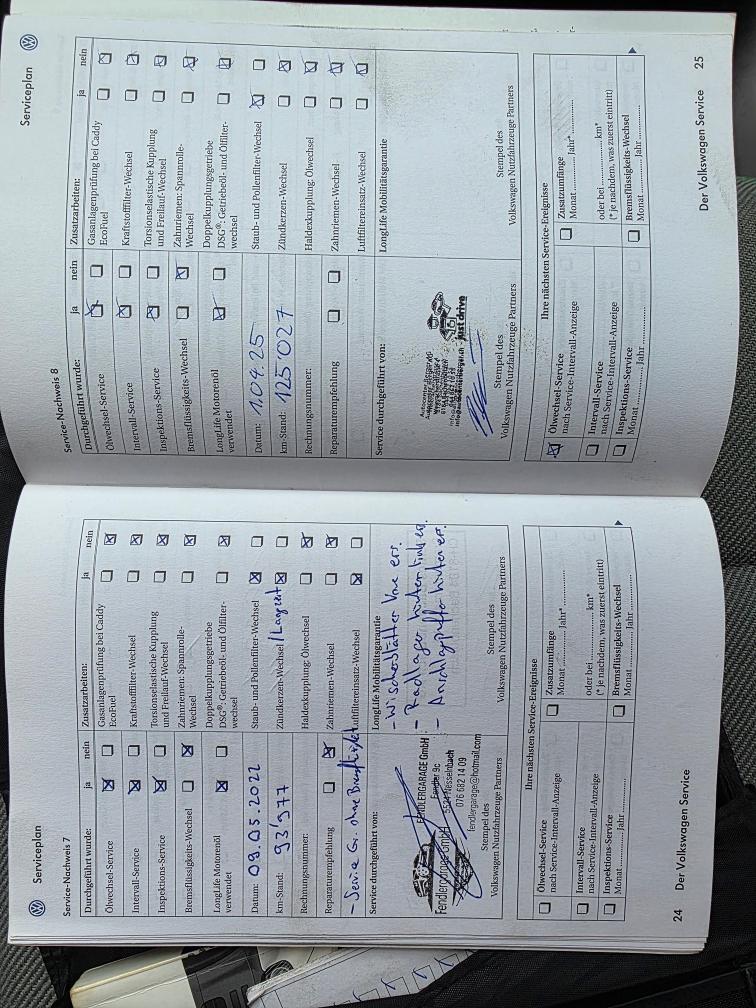 Serviceplan
Service-Nachweis 7
Durchgeführt wurde:
ja
nein
Ölwechsel-Service
Intervall-Service
Inspektions-Service
Bremsflüssigkeits-Wechsel
LongLife Motorenöl
verwendet
Datum: 09.05.2022
km-Stand: 93'977
Rechnungsnummer:
Reparaturempfehlung
- Service Gr. ohne
Service durchgeführt von:
FENDLERGARAGE GmbH
Fendler 9c
5524 Nesselnbach
076 682 14 09
fendlergarage@hotmail.com
Fendlergarage GmbH
Stempel des
Volkswagen Nutzfahrzeuge Partners
Zusatzarbeiten:
ja
nein
Gasanlagenprüfung bei Caddy
EcoFuel
Kraftstofffilter-Wechsel
Torsionselastische Kupplung
und Freilauf-Wechsel
Zahnriemen: Spannrolle-
Wechsel
Doppelkupplungsgetriebe
DSG®: Getriebeöl- und Ölfilter-
wechsel
Staub- und Pollenfilter-Wechsel
Zündkerzen-Wechsel / Langzeit
Haldexkupplung: Ölwechsel
Zahnriemen-Wechsel
Luftfiltereinsatz-Wechsel
LongLife Mobilitätsgarantie
- Wischerblätter Vorne ers.
- Radlager hinten links ers.
- Anschlagpuffer hinten ers.
Stempel des
Volkswagen Nutzfahrzeuge Partners
Ihre nächsten Service-Ereignisse
Ölwechsel-Service
nach Service-Intervall-Anzeige
Intervall-Service
nach Service-Intervall-Anzeige
Inspektions-Service
Monat ............ Jahr ............
Zusatzumfänge
Monat ............ Jahr* ............
oder bei ............ km*
(* je nachdem, was zuerst eintritt)
Bremsflüssigkeits-Wechsel
Monat ............ Jahr ............
24
Der Volkswagen Service
Serviceplan
Service-Nachweis 8
Durchgeführt wurde:
ja
nein
Ölwechsel-Service
Intervall-Service
Inspektions-Service
Bremsflüssigkeits-Wechsel
LongLife Motorenöl
verwendet
Datum: 1.04.25
km-Stand: 125'027
Rechnungsnummer:
Reparaturempfehlung
Service durchgeführt von:
just drive
Stempel des
Volkswagen Nutzfahrzeuge Partners
Zusatzarbeiten:
ja
nein
Gasanlagenprüfung bei Caddy
EcoFuel
Kraftstofffilter-Wechsel
Torsionselastische Kupplung
und Freilauf-Wechsel
Zahnriemen: Spannrolle-
Wechsel
Doppelkupplungsgetriebe
DSG®: Getriebeöl- und Ölfilter-
wechsel
Staub- und Pollenfilter-Wechsel
Zündkerzen-Wechsel
Haldexkupplung: Ölwechsel
Zahnriemen-Wechsel
Luftfiltereinsatz-Wechsel
LongLife Mobilitätsgarantie
Stempel des
Volkswagen Nutzfahrzeuge Partners
Ihre nächsten Service-Ereignisse
Ölwechsel-Service
nach Service-Intervall-Anzeige
Intervall-Service
nach Service-Intervall-Anzeige
Inspektions-Service
Monat ............ Jahr ............
Zusatzumfänge
Monat ............ Jahr* ............
oder bei ............ km*
(* je nachdem, was zuerst eintritt)
Bremsflüssigkeits-Wechsel
Monat ............ Jahr ............
Der Volkswagen Service
25